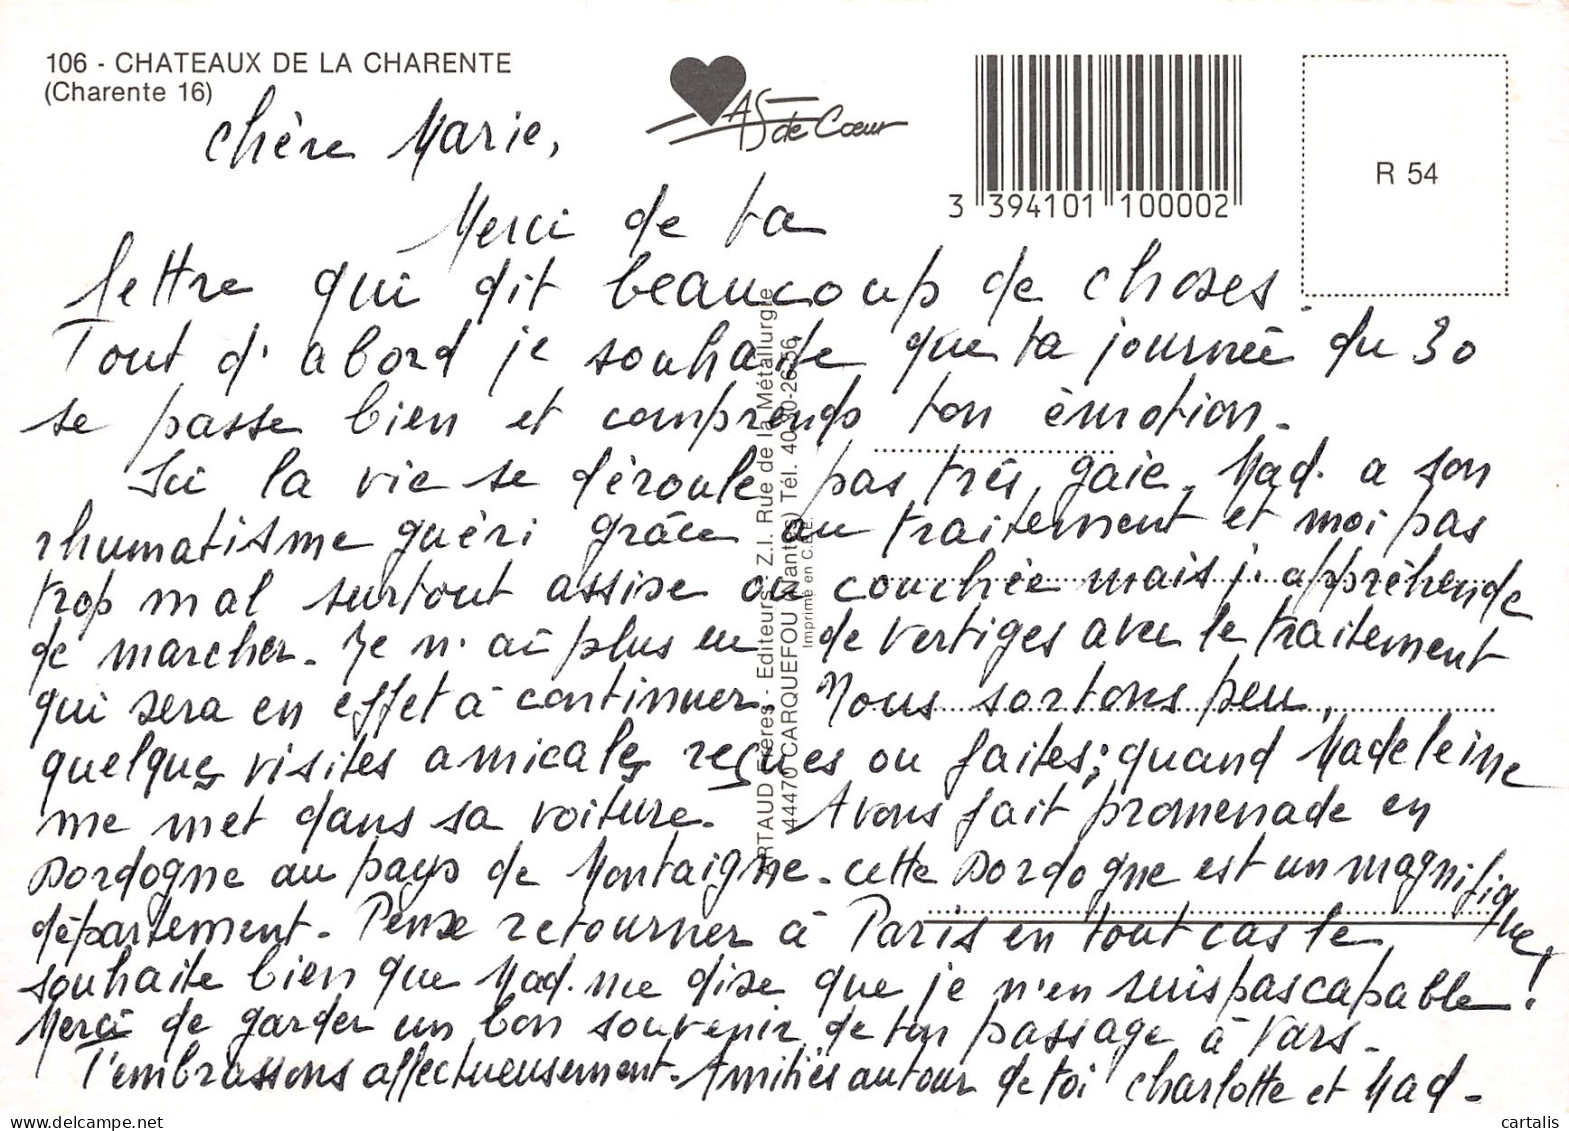 106 - CHATEAUX DE LA CHARENTE
(Charente 16)
AS de Cœur
3 394101 100002
R 54
ARTAUD Frères - Editeurs - Z.I. Rue de la Métallurgie
44470 CARQUEFOU (Nantes) Tél. 40-30-26-56
Imprimé en C.E.E.
Chère Marie,
Merci de ta
lettre qui dit beaucoup de choses.
Tout d'abord je souhaite que ta journée du 30
se passe bien et comprends ton émotion.
Ici la vie se déroule pas très gaie, Mad. a son
rhumatisme guéri grâce au traitement et moi pas
trop mal surtout assise ou couchée mais j'appréhende
de marcher. Je n'ai plus eu de vertiges avec le traitement
qui sera en effet à continuer. Nous sortons peu,
quelques visites amicales reçues ou faites; quand Madeleine
me met dans sa voiture. Avons fait promenade en
Dordogne au pays de Montaigne. cette Dordogne est un magnifique
département. Pense retourner à Paris en tout cas le
souhaite bien que Mad. me dise que je n'en suis pas capable!
Merci de garder un bon souvenir de ton passage à Vars.
T'embrassons affectueusement. Amitiés autour de toi Charlotte et Mad.
cartalis
www.delcampe.net